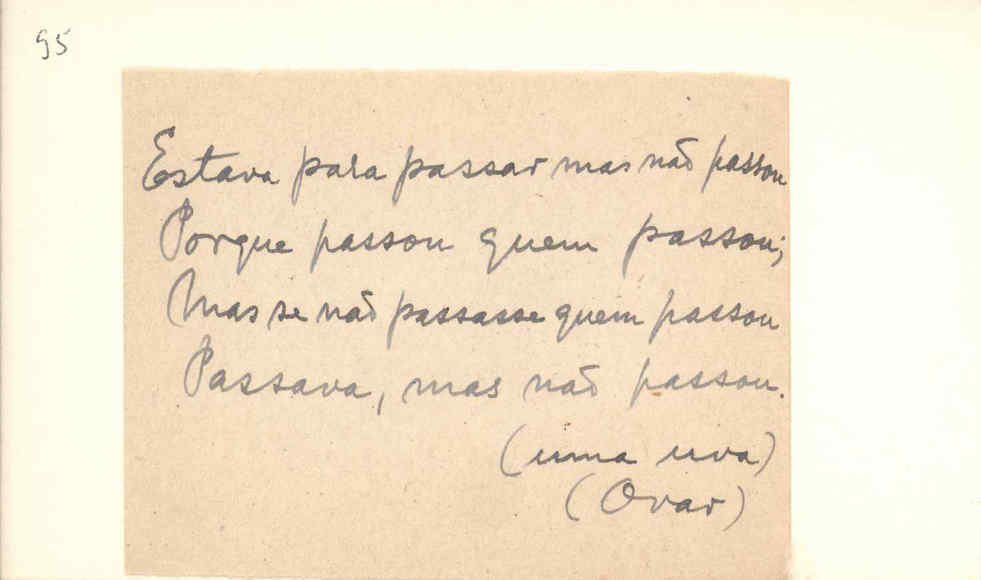 95
Estava para passar mas não passou
Porque passou quem passou;
Mas se não passasse quem passou
Passava, mas não passou.
(uma uva)
(Ovar)